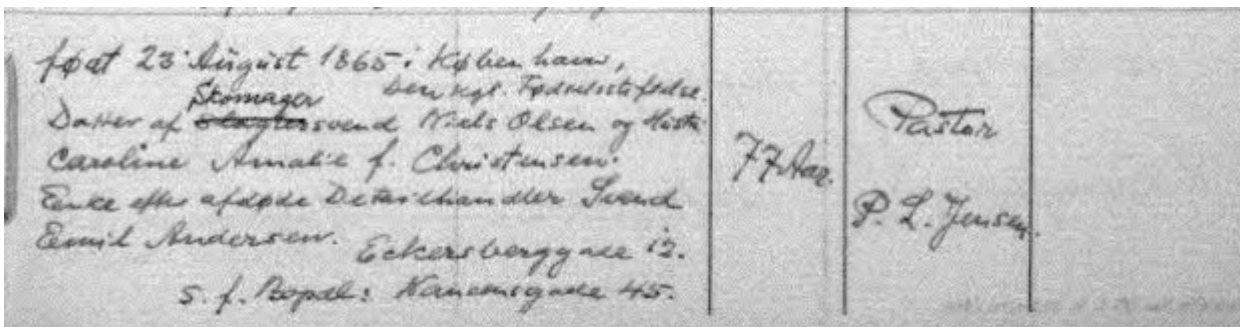 født 23 August 1865 i København,
den kgl. Fødselsstiftelse.
Skomager
Datter af Slagtersvend Niels Olsen og Hustr.
Caroline Amalie f. Christensen.
Enke efter afdøde Detailhandler Svend
Emil Andersen.
Eckersberggade 12.
S. f. Bopæl: Nansensgade 45.
77 Aar.
Pastor
P. L. Jensen.